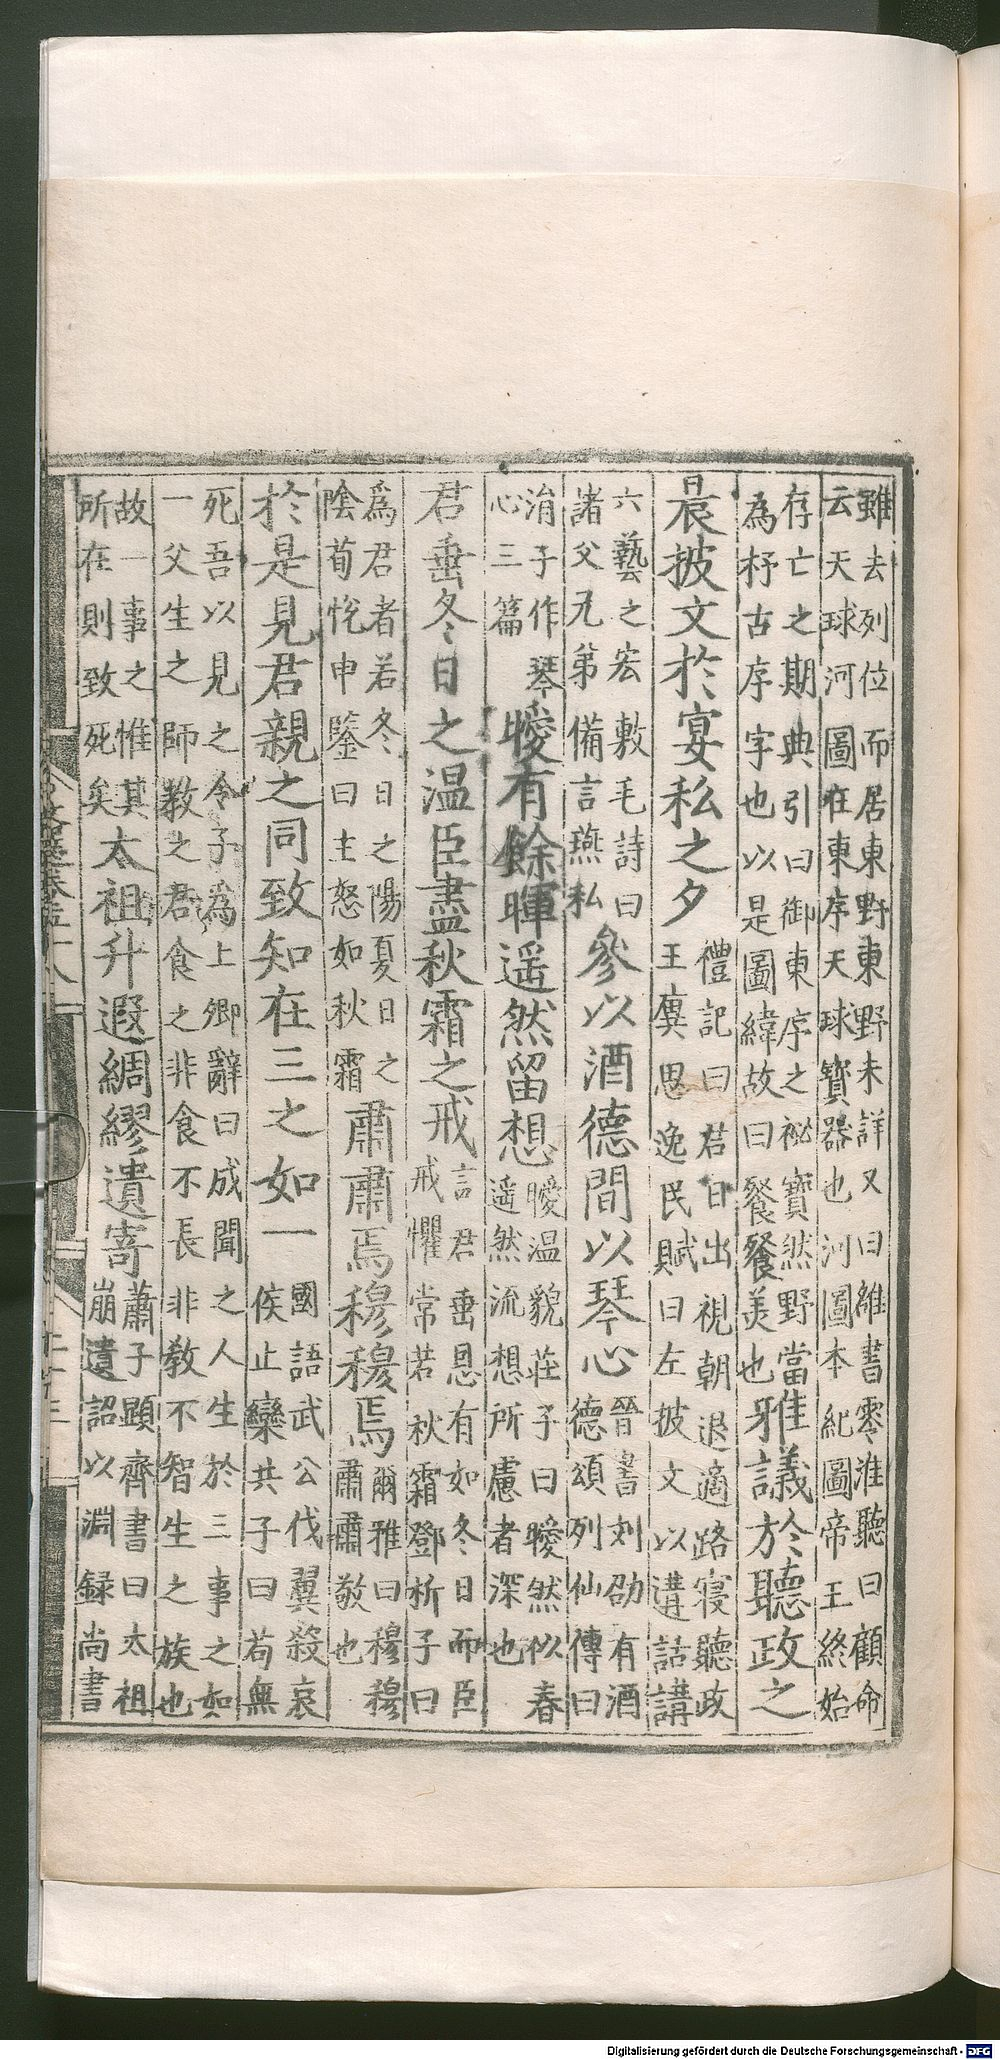 雖去列位而居東野東野未詳又曰雒書零准聽曰顧命
云天球河圖在東序天球寶器也河圖本紀圖帝王終始
存亡之期典引曰御東序之祕寶然野當
為杼古序字也以是圖緯故曰餐餐美也
雅議於聽政之
晨披文於宴私之夕
禮記曰君日出視朝退適路寢聽政
王廙思逸民賦曰左披文以講話講
六藝之宏敷毛詩曰
諸父兄弟備言燕私
參以酒德間以琴心
晉書劉劭有酒
德頌列仙傳曰
涓子作琴
心三篇
曖有餘暉遥然留想
曖温貌莊子曰曖然似春
遥然流想所慮者深也
君垂冬日之温臣盡秋霜之戒
言君垂恩有如冬日而臣
戒懼常若秋霜鄧析子曰
為君者若冬日之陽夏日之
陰荀恱申鑒曰主怒如秋霜
肅肅焉穆穆焉
爾雅曰穆穆
肅肅敬也
於是見君親之同致知在三之如一
國語武公伐翼殺哀
侯止欒共子曰苟無
死吾以見之令子為上卿辭曰成聞之人生於三事之如
一父生之師教之君食之非食不長非教不智生之族也
故一事之惟其
所在則致死矣
太祖升遐綢繆遺寄
蕭子顯齊書曰太祖
崩遺詔以淵録尚書
Digitalisierung gefördert durch die Deutsche Forschungsgemeinschaft - DFG